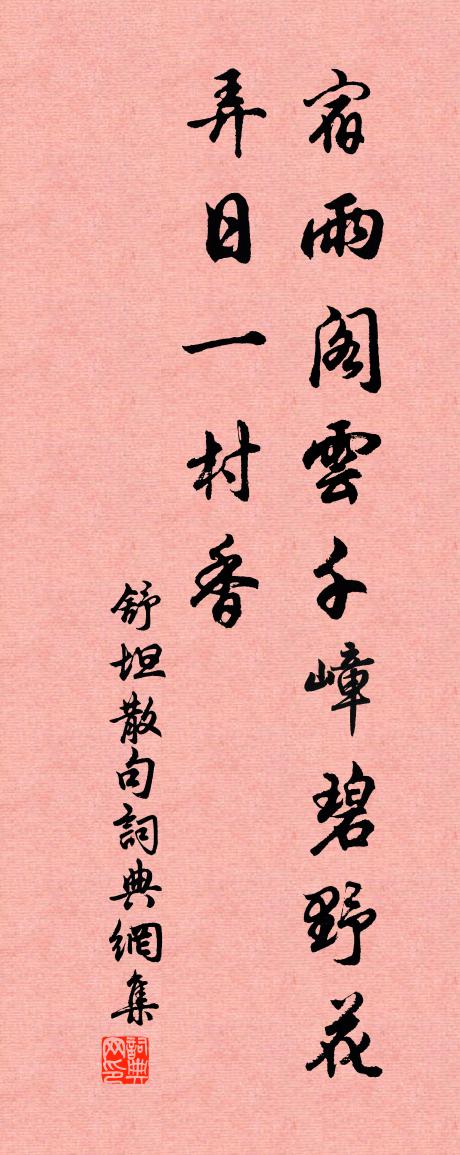 宿雨閣雲千嶂碧野花
弄日一村香
舒坦散句詞典網集
詞典网印